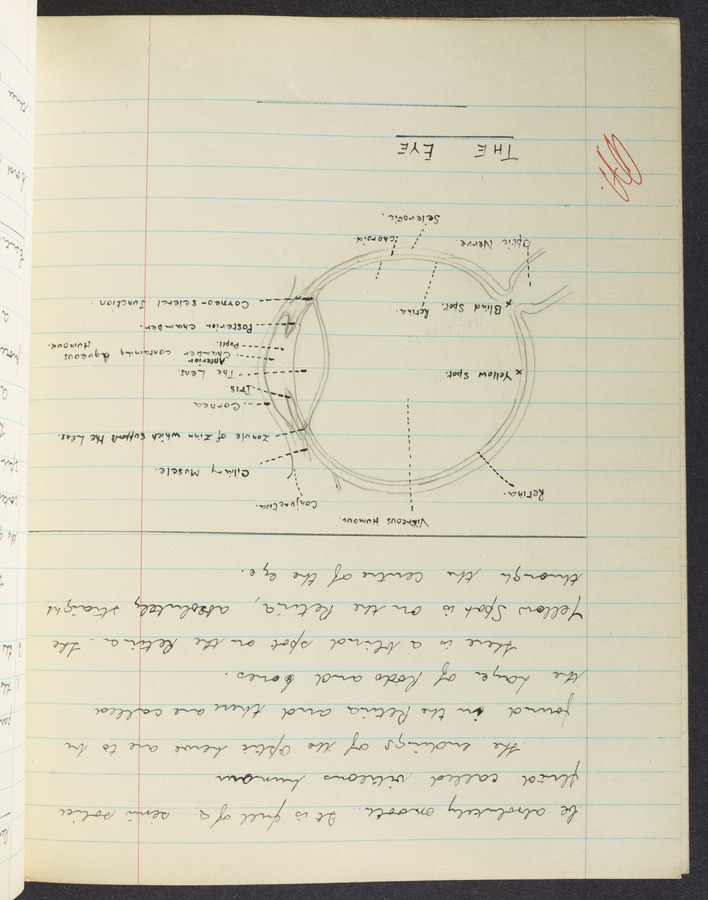 be absolutely smooth. It is full of a semi solid
fluid called vitteous humour
the endings of the optic nerve are to be
found in the Retina and there are called
the layer of Rods and Cones.
there is a blind spot on the Retina. the
Yellow Spot is on the Retina, absolutely straight
through the centre of the eye.
Vitreous Humour.
Conjunctiva.
Retina.
Ciliary Muscle.
Zonule of Zinn which supports the Lens.
Cornea
Iris
Yellow Spot.
The Lens.
Anterior
Chamber containing Aqueous
Humour.
Pupil.
Posterior Chamber.
Blind Spot.
Retina.
Corneo-scleral Junction.
Optic Nerve.
Choroid.
Sclerotic.
THE EYE